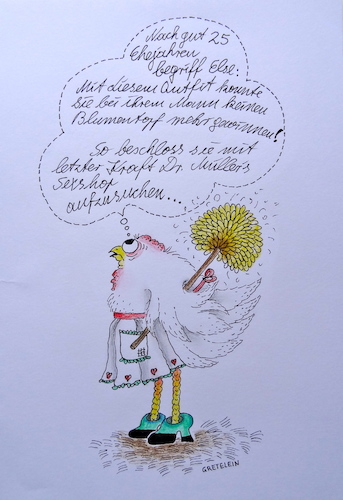 Nach gut 25
Ehejahren
begriff Else:
Mit diesem Outfit konnte
sie bei ihrem Mann keinen
Blumentopf mehr gewinnen!
So beschloss sie mit
letzter Kraft Dr. Müllers
Sexshop
aufzusuchen...
GRETELEIN